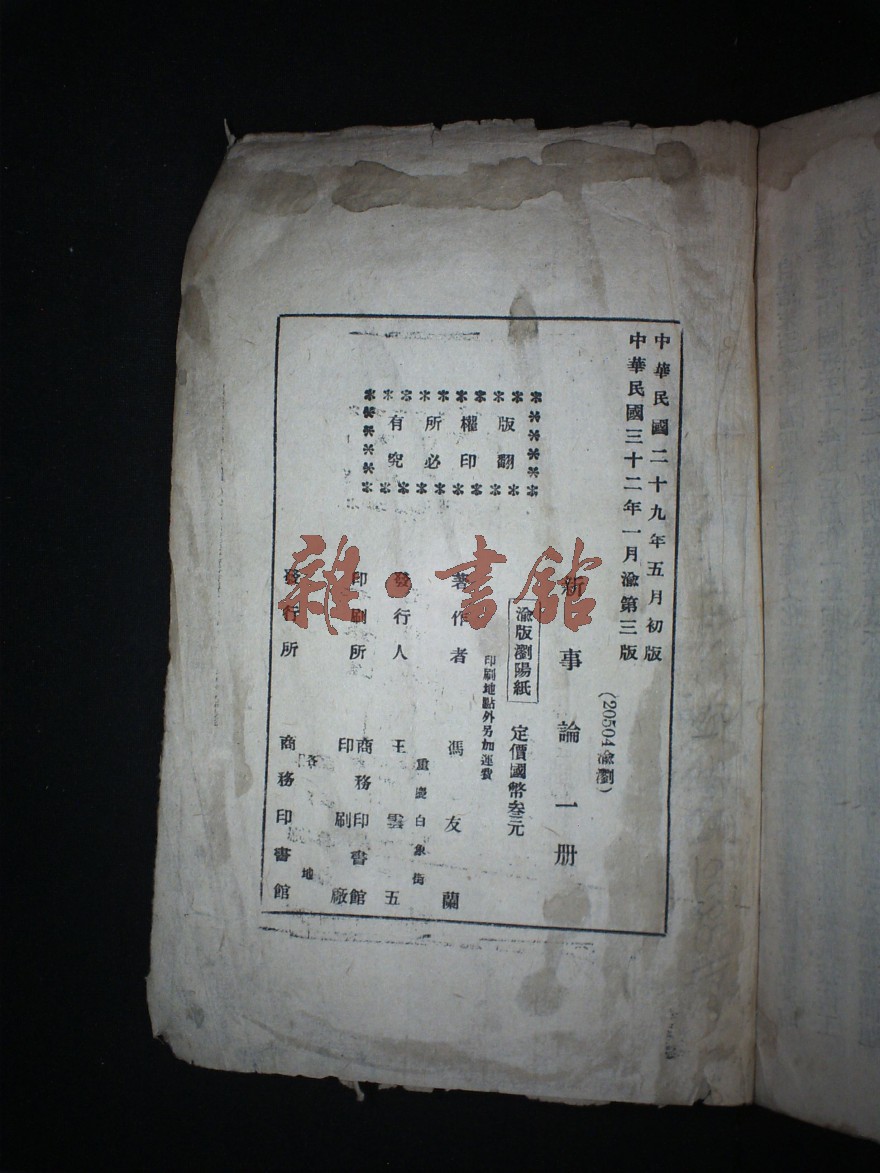 中華民國二十九年五月初版
中華民國三十二年一月渝第三版
(20504渝瀏)
新事論一册
渝版瀏陽紙
定價國幣叁元
印刷地點外另加運費
著作者 馮友蘭
發行人 王雲五
重慶白象街
印刷所 商務印書館
印刷廠
發行所 商務印書館
各地
版權所有
翻印必究
雜·書館